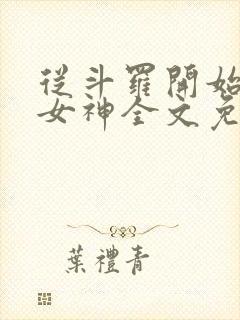 從斗羅開始
女神全文免
葉禮青